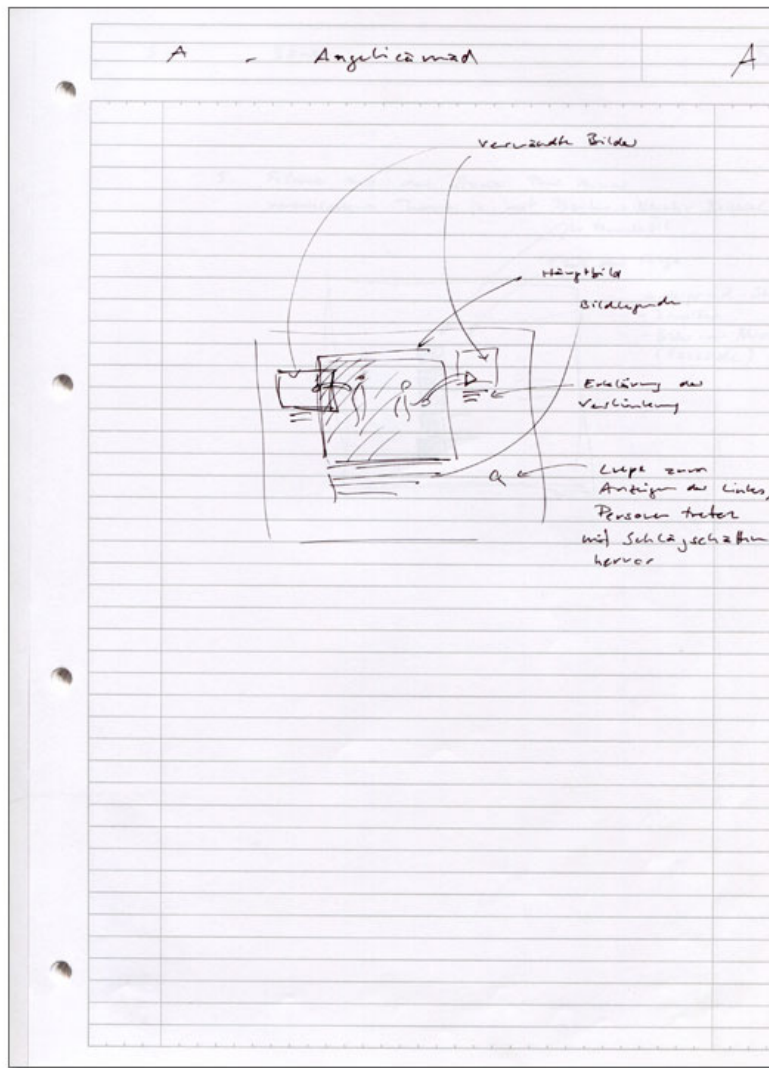 A - Angelicamad A
Verwandte Bilder
Hauptbild
Bildlegende
Erklärung der
Verlinkung
Lupe zum
Anzeigen der Links,
Personen treten
mit Schlagschatten
hervor